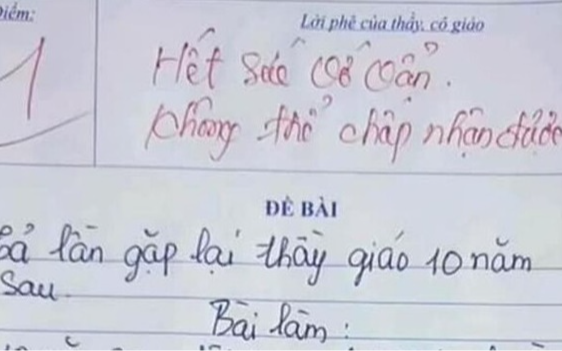 Điểm:
Lời phê của thầy, cô giáo
1
Hết sức cổ oản.
Không thể chấp nhận được
ĐỀ BÀI
tả lần gặp lại thầy giáo 10 năm
sau.
Bài làm: